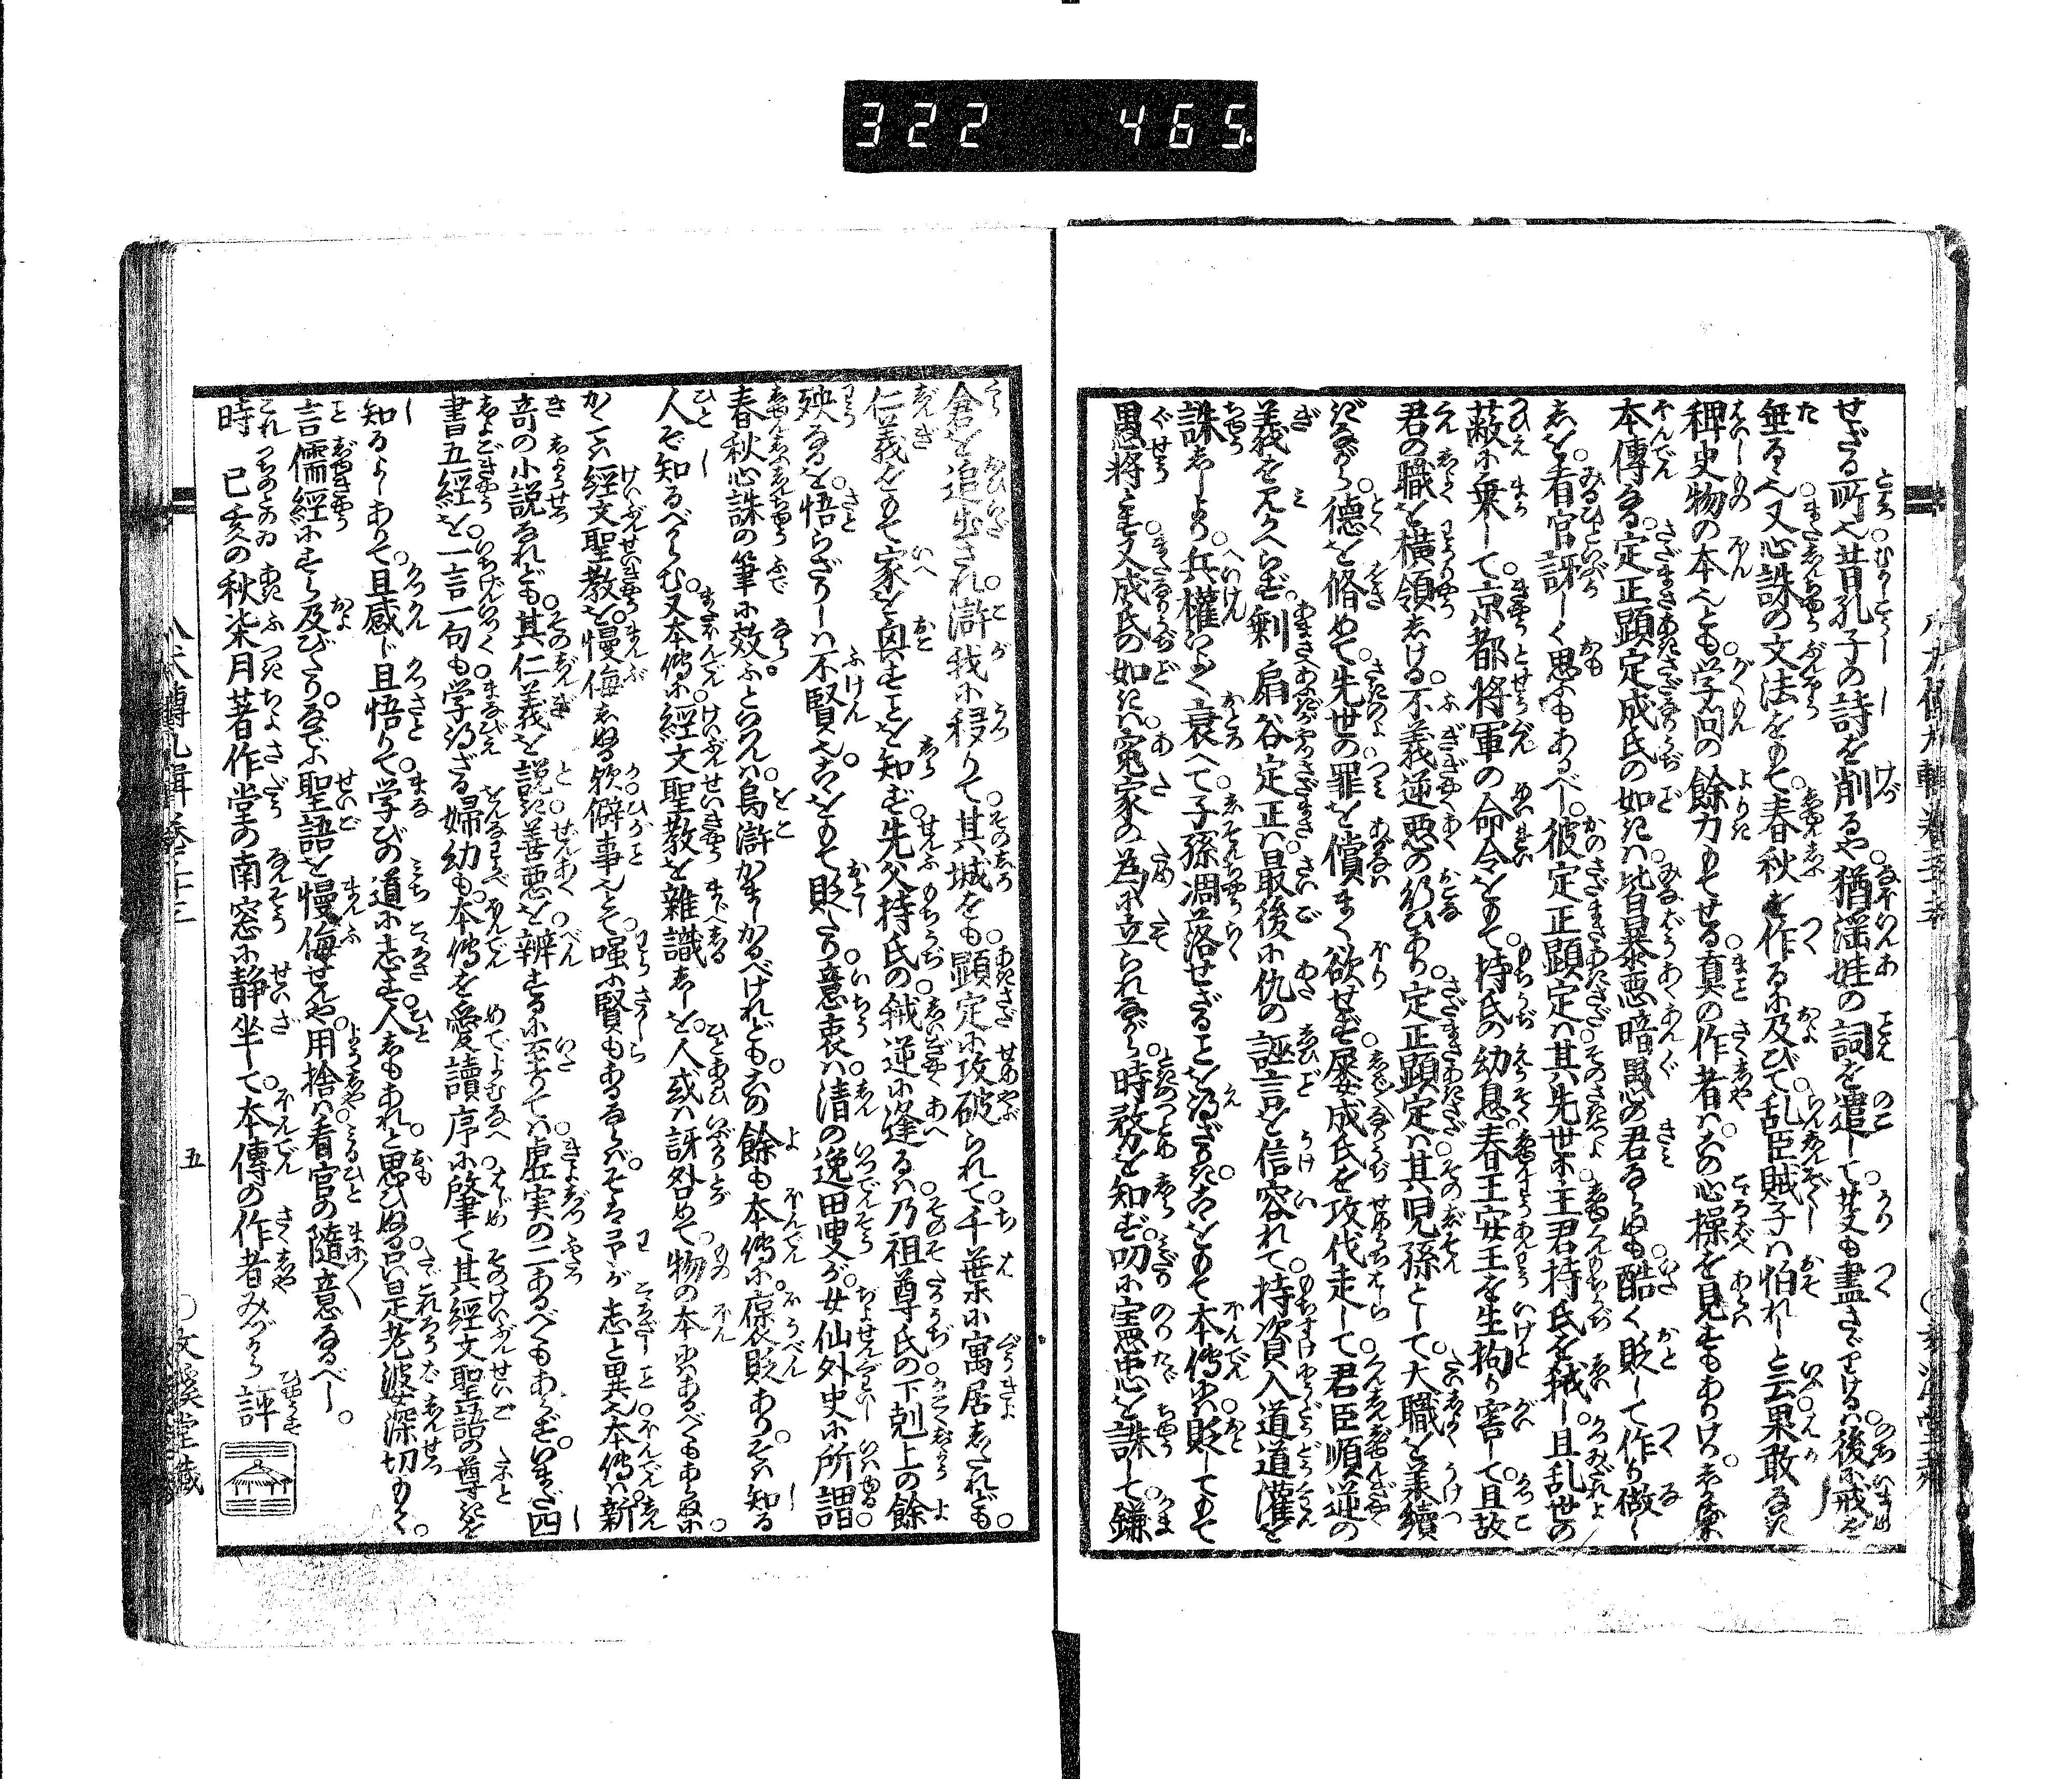 322 465
せざる所也昔孔子の詩を削るや猶淫娃の詞を遺して芟も盡さゞりけるは後に戒を
垂るゝ也又心誅の文法をもて春秋を作るに及びて乱臣賊子は怕れしと云果敢なき
稗史物の本也とも学問の餘力もてせる真の作者はこの心操を見すもありけり
本傳なる定正顕定成氏の如きは皆暴悪暗愚の君ならぬも酷く貶して作り做し
しを看官訝しく思ふもあるべし彼定正顕定は其先世に王君持氏を弑し且乱世の
蔽に乗して京都将軍の命令をもて持氏の幼息春王安王を生拘り害して且故
君の職を横領しける不義逆悪の行ひあり定正顕定は其児孫として大職を兼續
ぎながら德を脩めて先世の罪を償まく欲せず屡成氏を攻伐走して君臣順逆の
義を見かへらず剰扇谷定正は最後に仇の誣言を信容れて持資入道道灌を
誅ししより兵權いよゝ衰へて子孫凋落せざることを得ざりきこをもて本傳には貶してもて
愚将とす又成氏の如きは寃家の為に立られながら時務を知ず叨に憲忠を誅して鎌
倉を追出され滸我に移りて其城をも顕定に攻破られて千葉に寓居しされども
仁義をもて家を興すことを知ず先父持氏の弑逆に逢るは乃祖尊氏の下剋上の餘
殃なるを悟らざりしは不賢也こをもて貶たり意衷は清の逸田叟が女仙外史に所謂
春秋心誅の筆に效ふといはんは烏滸がましかるべけれどもこの餘も本傳に褒貶ありそは知る
人ぞ知るべからむ又本傳に經文聖教を雜識ししを人或は訝咎めて物の本にはあるべくもあらぬに
かくては經文聖教を慢侮しぬる欤僻事也とて嗤に賢もあるならばそは予が志と異也本傳は新
奇の小説なれども其仁義を説き善悪を辨ずるに至りては虚実の二あるべくもあらずいまだ四
書五經を一言一句も学得ざる婦幼も本傳を愛讀序に肇て其經文聖語の尊きを
知るよしありて且感じ且悟りて学びの道に志す人しもあれと思ひぬる只是老婆深切もて
言儒經にすら及びたりなでふ聖語を慢侮せんや用捨は看官の隨意なるべし
時 己亥の秋柒月著作堂の南窓に静坐して本傳の作者みづから評
八犬傳九輯卷三十三
五
文溪堂藏